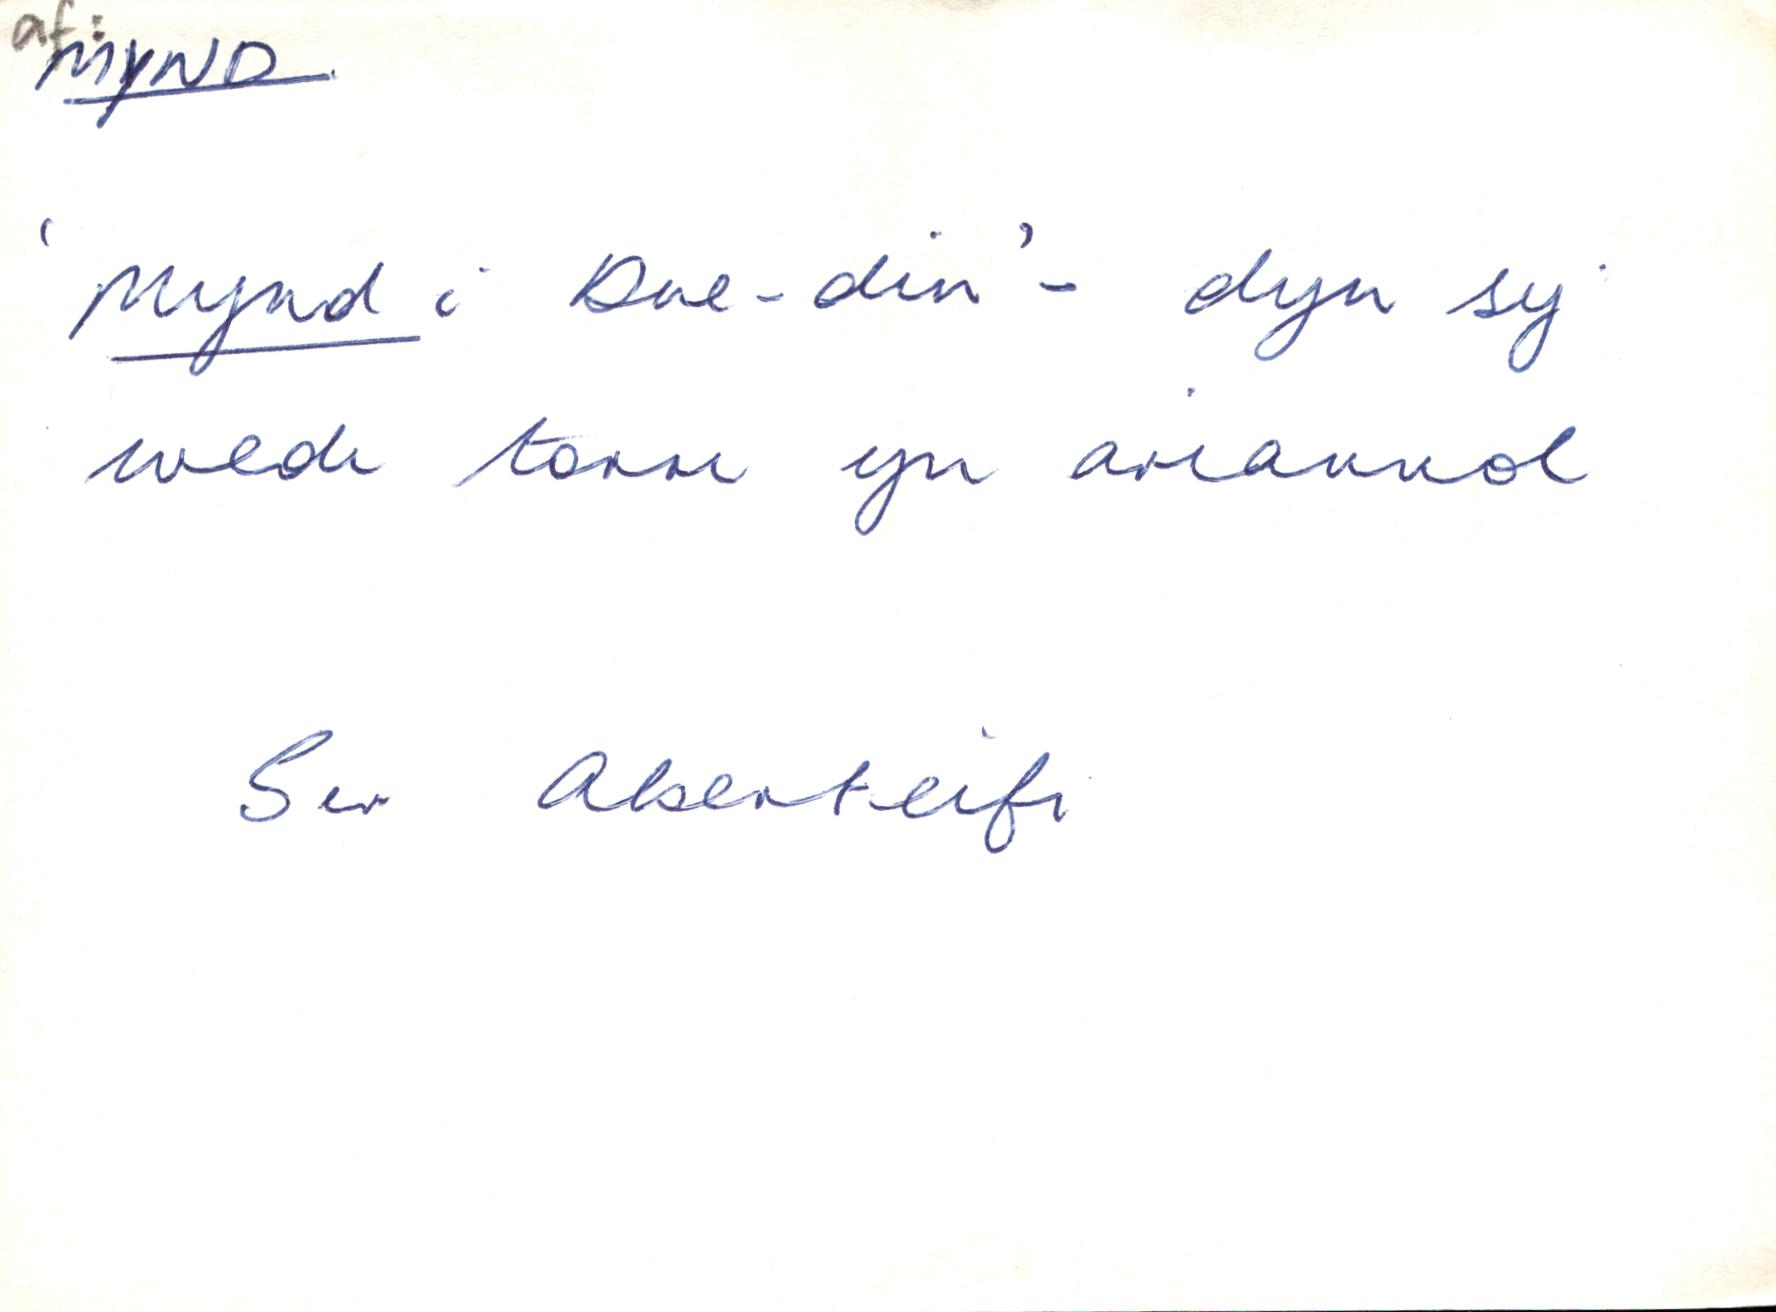 af:
MYND
'Mynd i Dre-din' - dyn sy
wedi torri yn ariannol
Sir Aberteifi